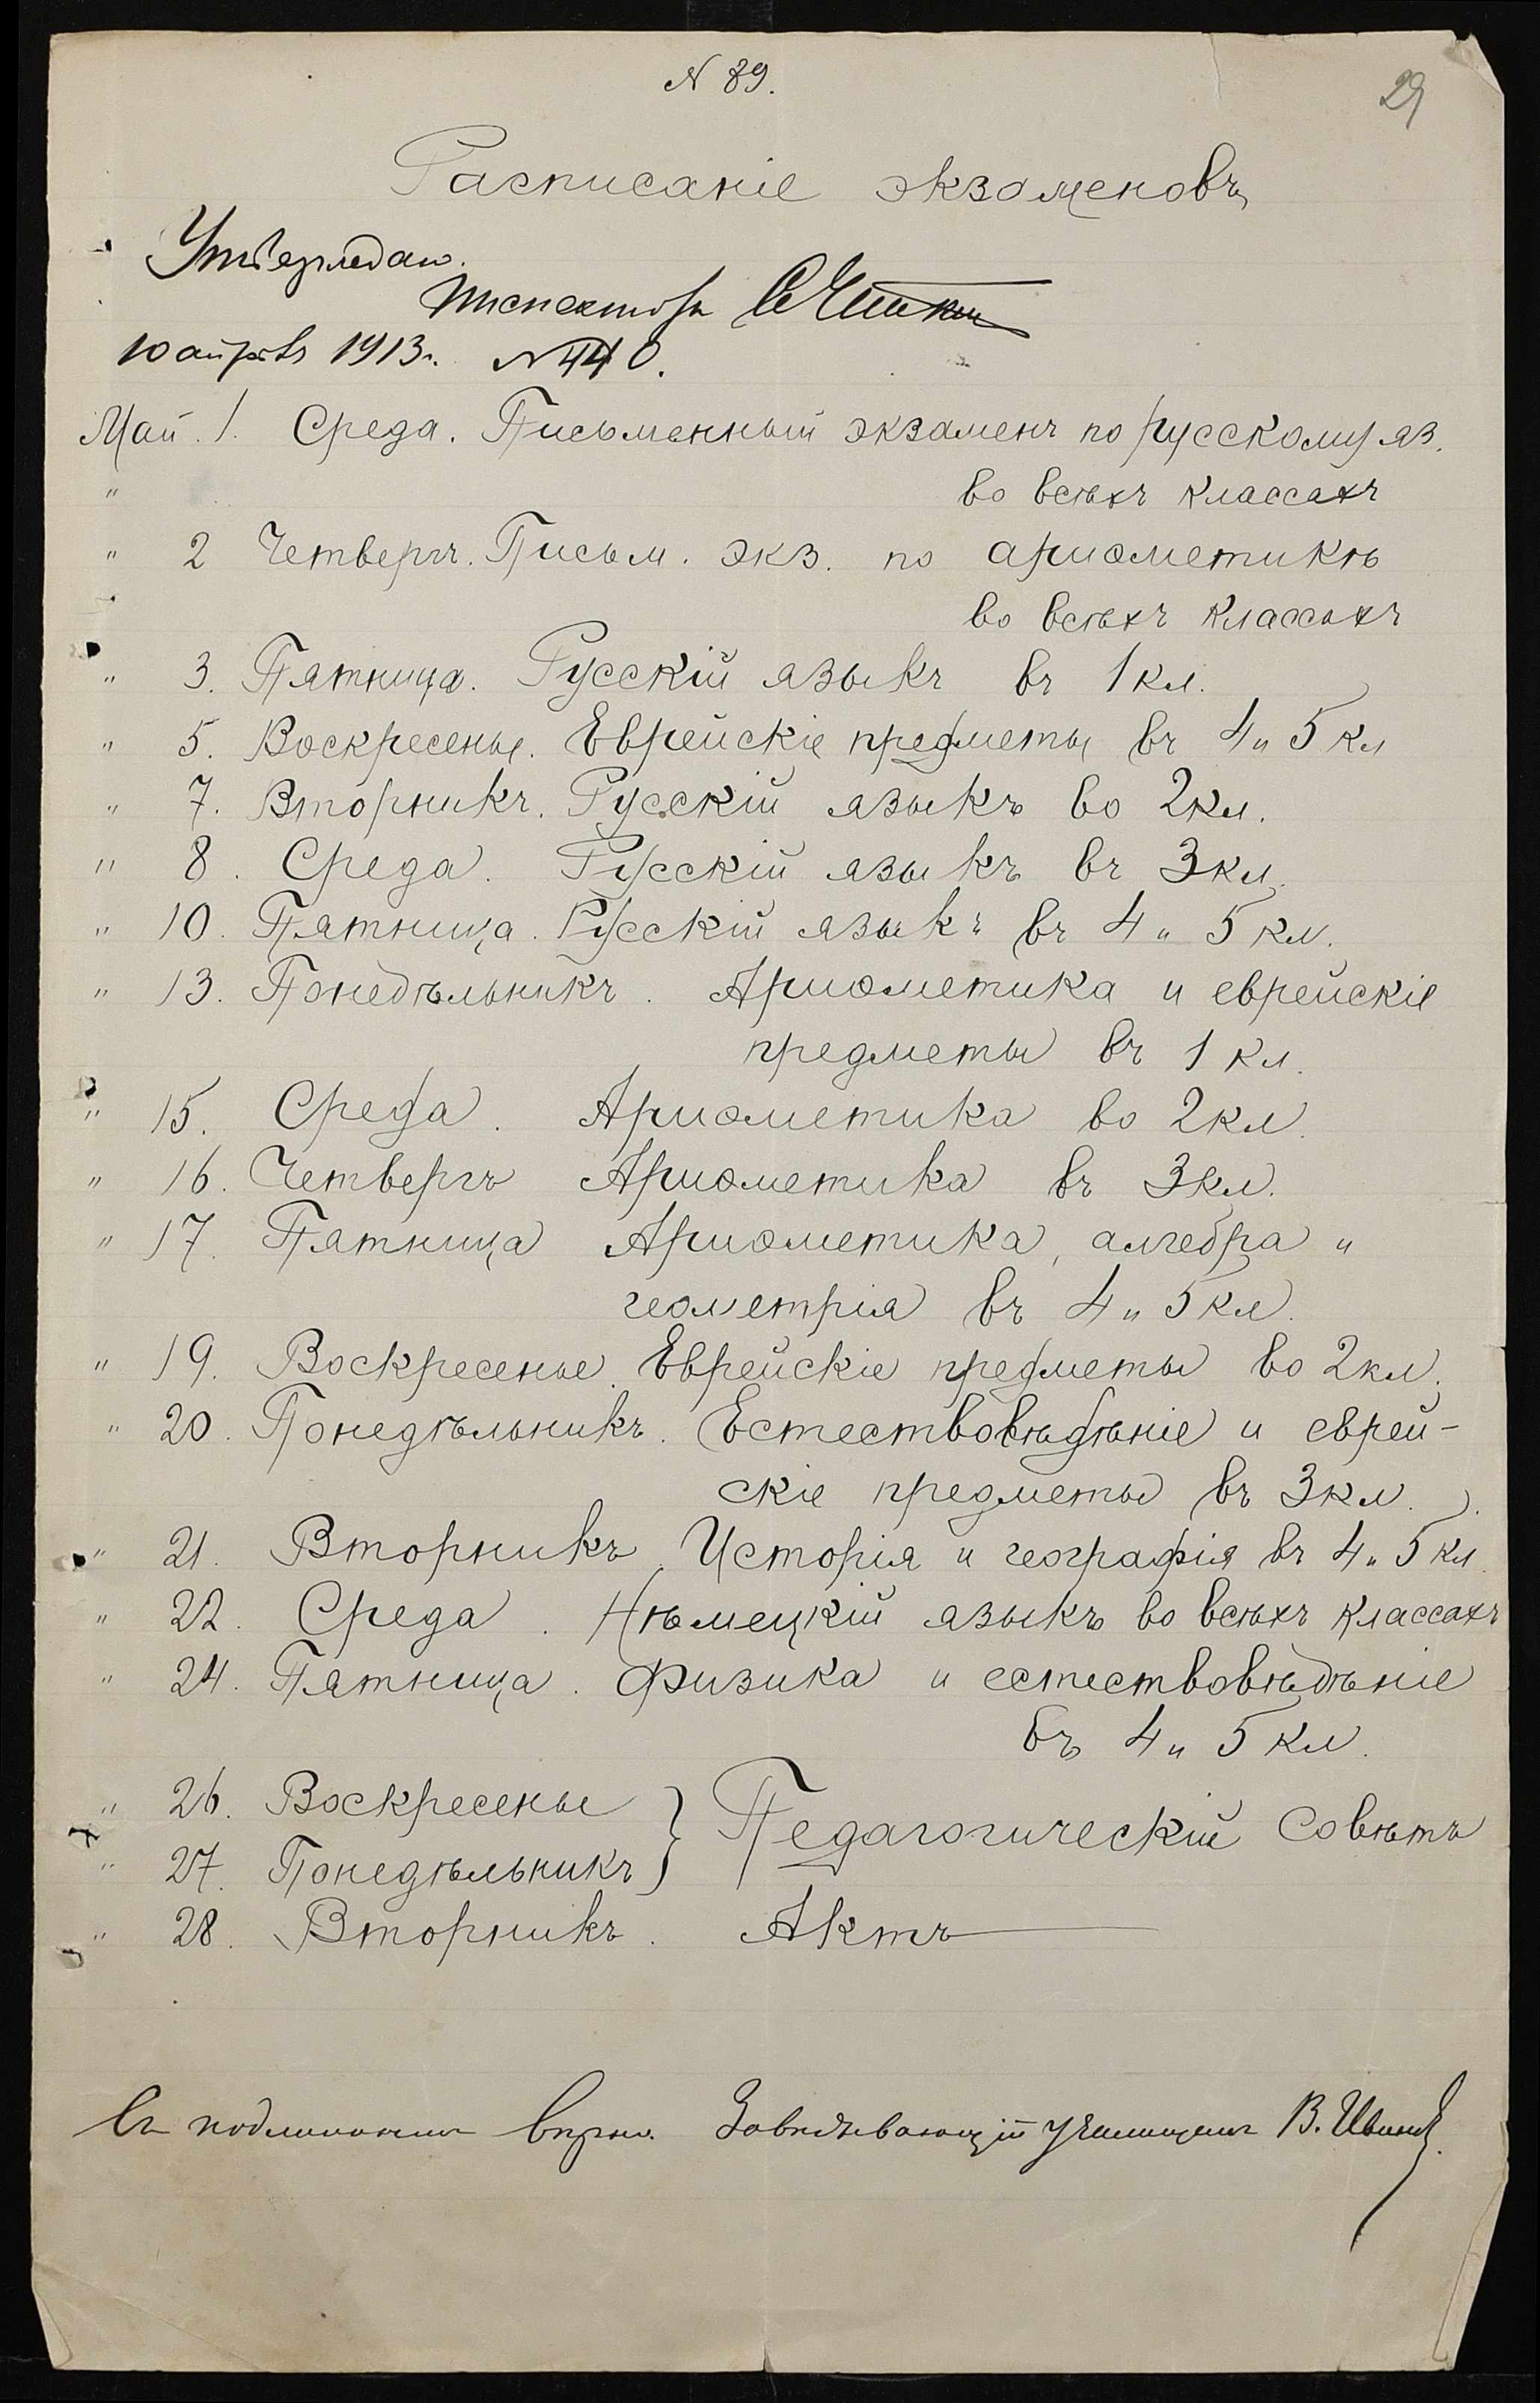 N 89.
29
Расписаніе экзаменовъ
Утверждаю.
Инспекторъ
10 апрѣля 1913 г. N 440.
Май. 1. Среда. Письменный экзаменъ по русскому яз.
" во всѣхъ классахъ
" 2 Четвергъ. Письм. экз. по ариѳметикѣ
во всѣхъ классахъ
" 3. Пятница. Русскій языкъ въ 1 кл.
" 5. Воскресенье. Еврейскіе предметы въ 4 и 5 кл
" 7. Вторникъ. Русскій языкъ во 2 кл.
" 8. Среда. Русскій языкъ въ 3 кл.
" 10. Пятница. Русскій языкъ въ 4 и 5 кл.
" 13. Понедѣльникъ. Ариѳметика и еврейскіе
предметы въ 1 кл.
" 15. Среда. Ариѳметика во 2 кл.
" 16. Четвергъ Ариѳметика въ 3 кл.
" 17. Пятница Ариѳметика, алгебра и
геометрія въ 4 и 5 кл.
" 19. Воскресенье. Еврейскіе предметы во 2 кл.
" 20. Понедѣльникъ. Естествовѣдѣніе и еврей-
скіе предметы въ 3 кл.
" 21. Вторникъ. Исторія и географія въ 4 и 5 кл.
" 22. Среда. Нѣмецкій языкъ во всѣхъ классахъ
" 24. Пятница. Физика и естествовѣдѣніе
въ 4 и 5 кл.
" 26. Воскресенье
" 27. Понедѣльникъ } Педагогическій Совѣтъ
" 28. Вторникъ. Актъ
Съ подлиннымъ вѣрно. Завѣдывающій училищемъ В.